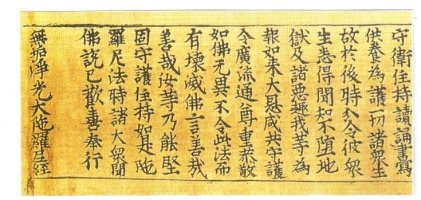 守衛住持讀誦書寫
供養為護一切諸衆生
故於後時分令彼衆
生悉得聞知不墮地
獄及諸惡趣我等為
報如來大恩咸共守護
令廣流通尊重恭敬
如佛无異不令此法而
有壞滅佛言善哉
善哉汝等乃能堅
固守護住持如是陁
羅尼法時諸大衆聞
佛說已歡喜奉行
無垢淨光大陁羅尼經